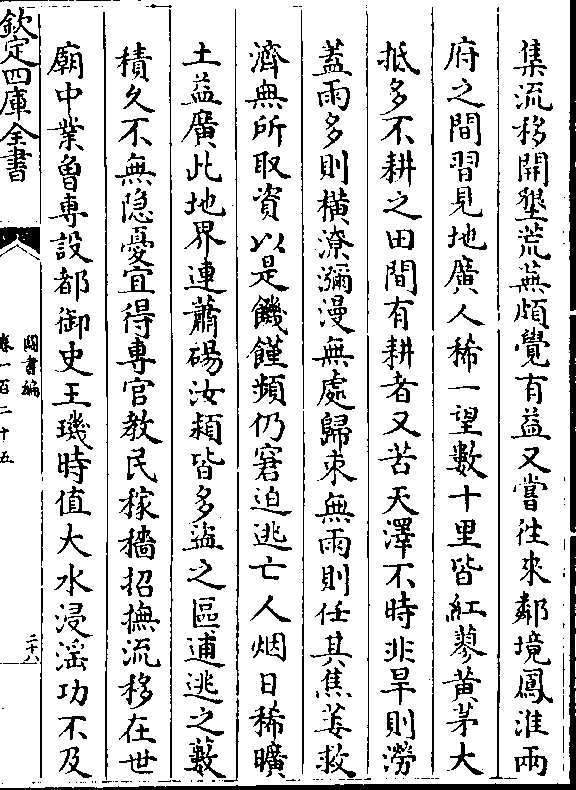 集流移開墾荒蕪頗覺有益又嘗往來鄰境鳳淮兩
府之間習見地廣人稀一望數十里皆紅蓼黄茅大
抵多不耕之田間有耕者又苦天澤不時非旱則澇
蓋雨多則橫潦瀰漫無處歸束無雨則任其焦萎救
濟無所取資以是饑饉頻仍窘迫逃亡人烟日稀曠
土益廣此地界連蕭碭汝潁皆多盜之區逋逃之藪
積久不無隱憂宜得專官教民稼穡招撫流移在世
廟中業曾專設都御史王璣時值大水浸滛功不及
欽定四庫全書
圖書編
卷一百二十五
二十八